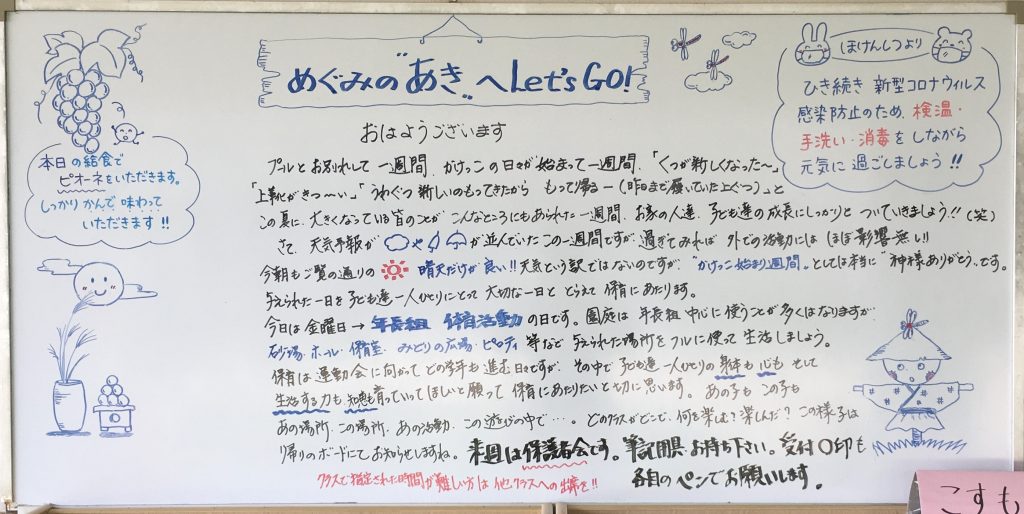 めぐみの"あき"へLet's GO!
おはようございます
プールとお別れして一週間、かけっこの日々が始まって一週間、「くつが新しくなった〜」
「上靴がきつ〜い。」「うわぐつ新しいのもってきたから もって帰るー(昨日まで履いていた上ぐつ)」と
この夏に、大きくなっている皆のことが こんなところにもあらわれた一週間、お家の人達、子ども達の成長にしっかりと ついていきましょう!!(笑)
さて、天気予報が や が並んでいたこの一週間ですが 過ぎてみれば 外での活動には ほぼ影響無し!!
今朝もご覧の通りの 晴天だけが良い!!天気という訳ではないのですが、"かけっこ始まり週間"としては本当に"神様ありがとう"です。
与えられた一日を子ども達一人ひとりにとって 大切な一日と とらえて 保育にあたります。
今日は 金曜日→年長組 体育活動の日です。園庭は 年長組 中心に使うことが 多くはなりますが
砂場・ホール・保育室・みどりの広場・ピロティ 等など 与えられた場所を フルに使って 生活しましょう。
保育は 運動会に向かって どの学年も 進む日々ですが、その中で 子ども達一人ひとりの 身体も 心も そして
生活する力も 知恵も育っていってほしいと 願って 保育にあたりたいと切に思います。あの子も この子も
あの場所、この場所、あの活動、この遊びの中で…。どのクラスがどこで、何を楽しむ?楽しんだ?この様子は
帰りのボードにて お知らせしますね。来週は保護者会です。筆記用具お持ち下さい。受付〇印も
各自のペンでお願いします。
クラスで指定された時間が難しい方は 他クラスへの出席を!!
本日の給食で
ピオーネをいただきます。
しっかりかんで 味わって
いただきます!!
ほけんしつより
ひき続き 新型コロナウィルス
感染防止のため、検温・
手洗い・消毒をしながら
元気に過ごしましょう!!
こすも